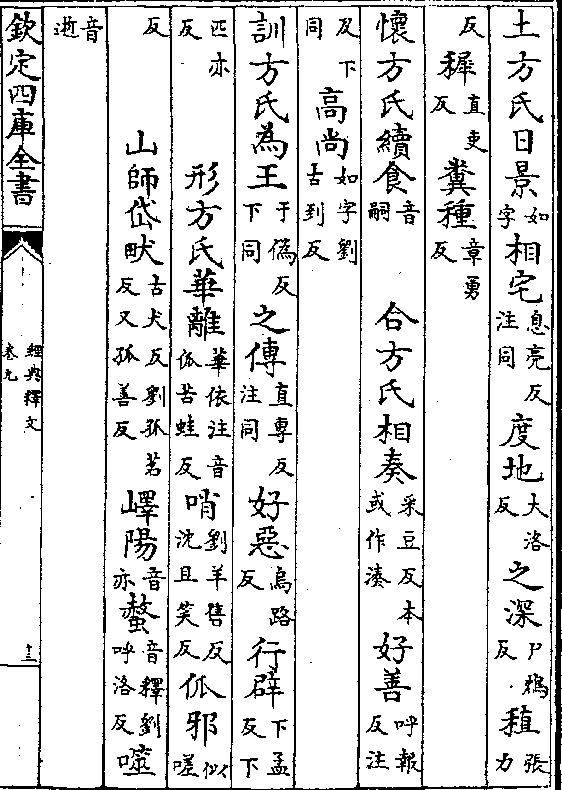 土方氏日景如字相宅息亮反注同度地大洛反之深尸鴆反稙張力
反穉直吏反糞種章勇反
懷方氏續食音嗣 合方氏相奏采豆反本或作湊好善呼報反注
及下同 高尚如字劉古到反
訓方氏為王于偽反下同之傳直專反注同好惡烏路反行辟下孟反下
匹亦反 形方氏華離華依注音㐵苦蛙反哨劉羊售反沈且笑反㐵邪似嗟
反 山師岱畎古犬反劉孤茗反又孤善反嶧陽音亦螫音釋劉呼洛反噬
音逝
欽定四庫全書
經典釋文
卷九
十三